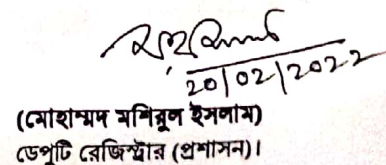 20/02/2022
(মোহাম্মদ মশিরুল ইসলাম)
ডেপুটি রেজিস্ট্রার (প্রশাসন)।